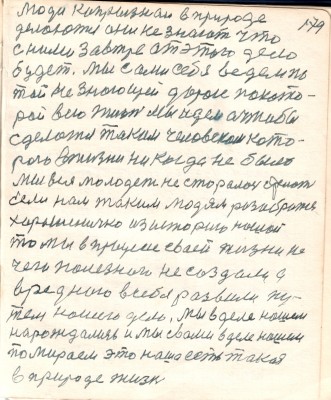 179
люди капризная в природе
делаются они не знают что
с ними завтра от этого дело
будет. Мы сами себя ведем по
той не знающей дороге по кото-
рой всю жизнь мы идем а чтобы
сделался таким человеком кото-
рого в жизни никогда не было
мы вся молодеж не старалась
если нам таким людям разобраться
харошеничко из историю нашей
то мы в прошлое своей жизни не
чего полезного не создали а
вредного в себя развили пу-
тем нашего дело, мы в деле нашем
нарождались и мы с вами в деле нашем
помираем это наша есть такая
в природе жизн